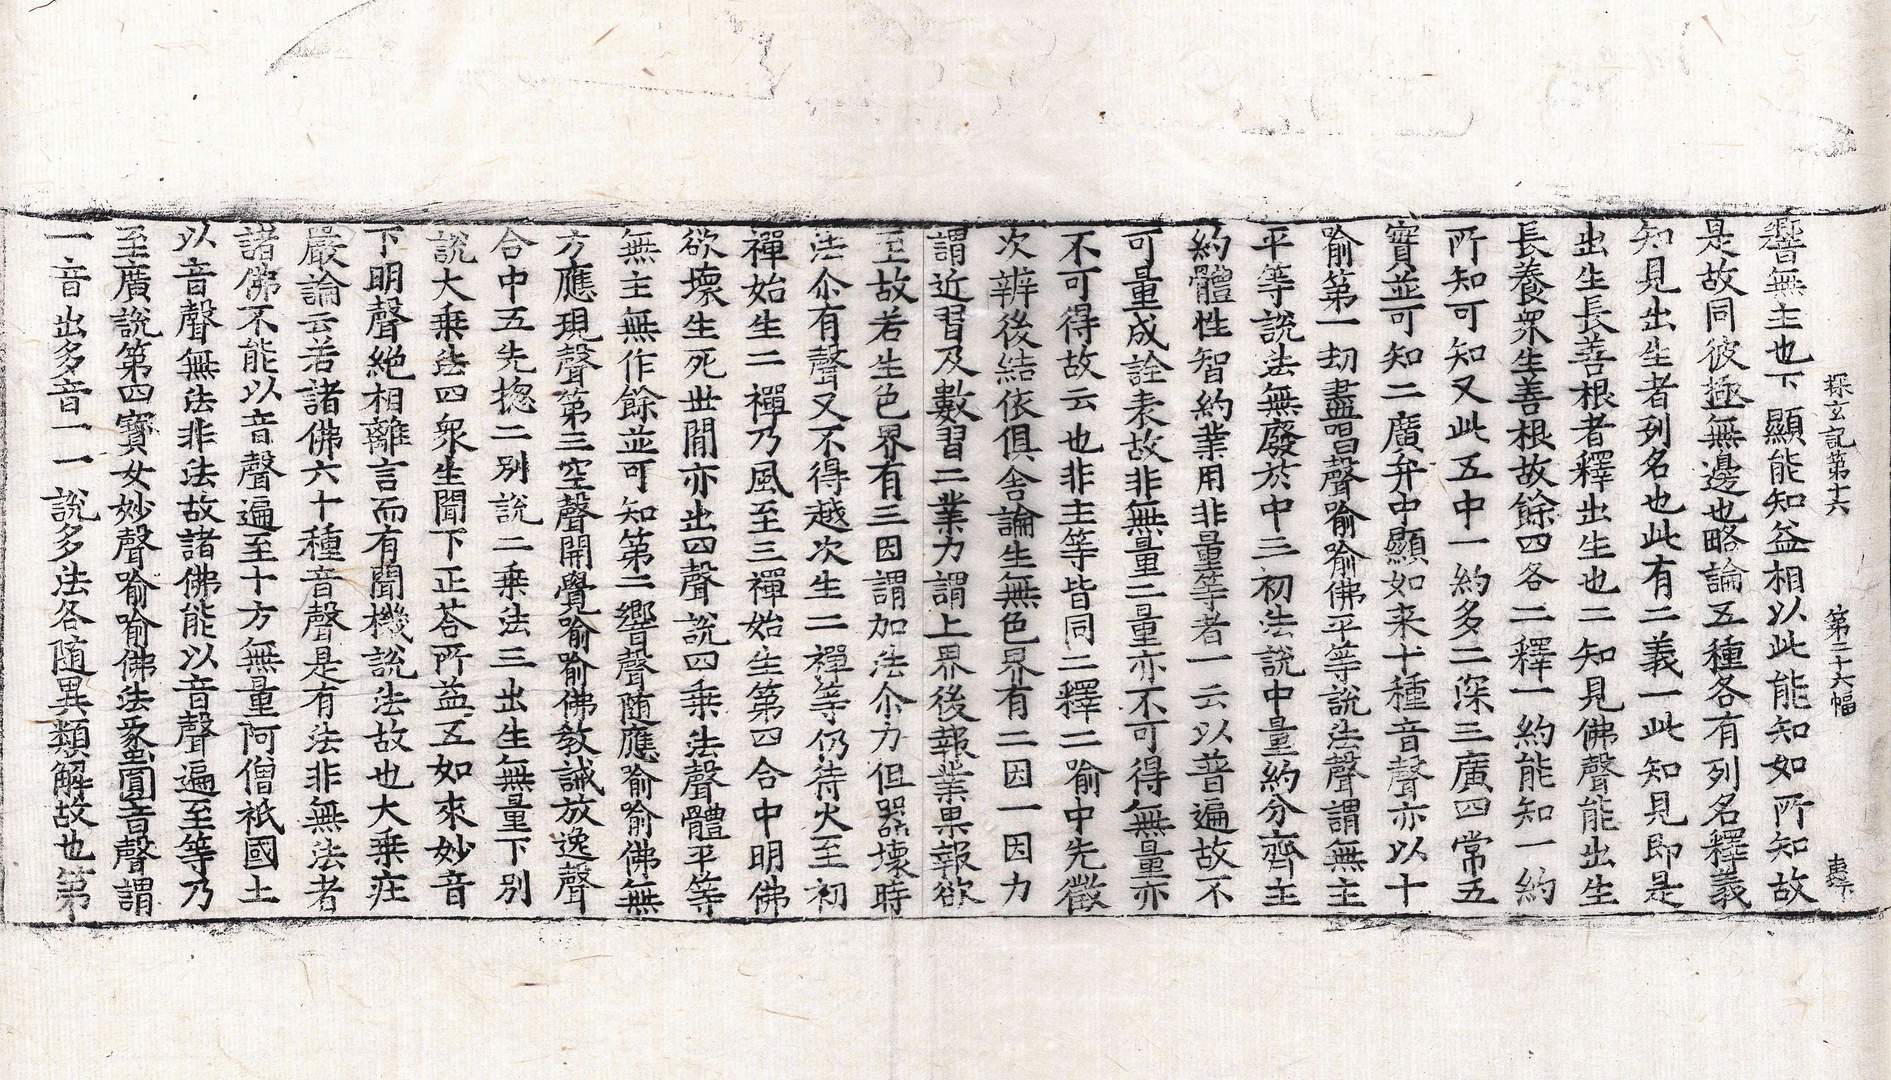 探玄記第十六　第二十六幅
響無主也下顯能知益相以此能知如所知故
是故同彼極無邊也略論五種各有列名釋義
知見出生者列名也此有二義一此知見即是
出生長善根者釋出生也二知見佛聲能出生
長養衆生善根故餘四各二釋一約能知一約
所知可知又此五中一約多二深三廣四常五
實並可知二廣弁中顯如来十種音聲亦以十
喻第一劫盡唱聲喻喻佛平等說法聲謂無主
平等說法無廢於中三初法說中量約分齊主
約體性智約業用非量等者一云以普遍故不
可量成詮表故非無量二量亦不可得無量亦
不可得故云也非主等皆同二釋二喻中先徵
次辨後結依俱舍論生無色界有二因一因力
謂近習及數習二業力謂上界後報業果報欲
至故若生色界有三因謂加法尒力但器壞時
法尒有聲又不得越次生二禪等仍待火至初
禪始生二禪乃風至三禪始生第四合中明佛
欲壞生死世間亦出四聲說四乗法聲體平等
無主無作餘並可知第二響聲随應喻喻佛無
方應現聲第三空聲開覺喻喻佛教誡放逸聲
合中五先揔二別說二乗法三出生無量下別
說大乗法四衆生聞下正荅所益五如來妙音
下明聲絶相離言而有聞機說法故也大乗庄
嚴論云若諸佛六十種音聲是有法非無法者
諸佛不能以音聲遍至十方無量阿僧祇國土
以音聲無法非法故諸佛能以音聲遍至等乃
至廣說第四寶女妙聲喻喻佛法蠡圓音聲謂
一音出多音一一說多法各随異類解故也第